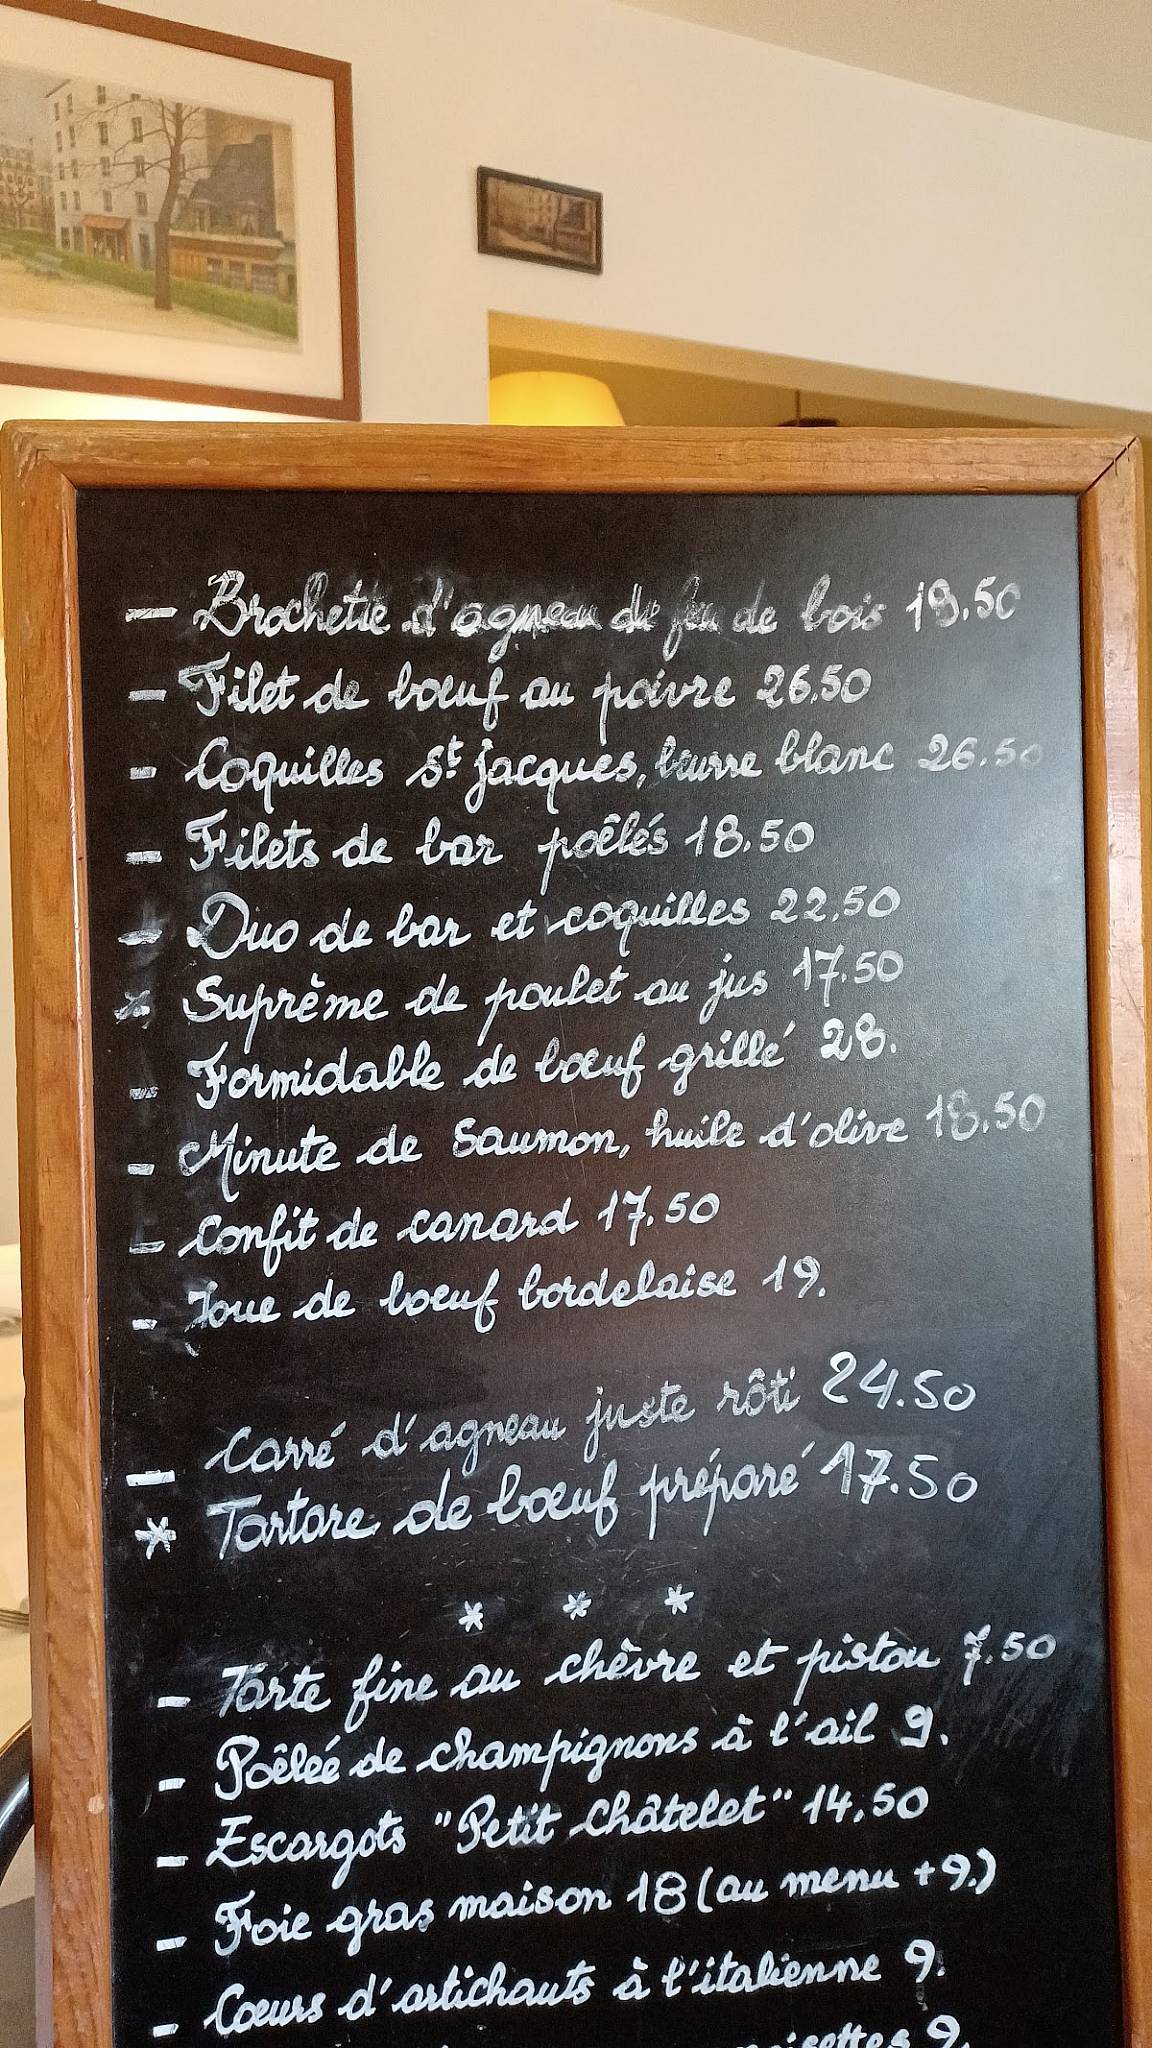 - Brochette d'agneau de feu de bois 19.50
- Filet de bœuf au poivre 26.50
- Coquilles St jacques, beurre blanc 26.50
- Filets de bar poêlés 18.50
- Duo de bar et coquilles 22.50
* Suprême de poulet au jus 17.50
- Formidable de bœuf grillé 28.
- Minute de Saumon, huile d'olive 18.50
- Confit de canard 17.50
- Joue de boeuf bordelaise 19.
- Carré d'agneau juste rôti 24.50
* Tartare de bœuf préparé 17.50
* * *
- Tarte fine au chèvre et pistou 7.50
- Poêlée de champignons à l'ail 9.
- Escargots "Petit Châtelet" 14.50
- Foie gras maison 18 (au menu +9.)
- Cœurs d'artichauts à l'italienne 9.
9.